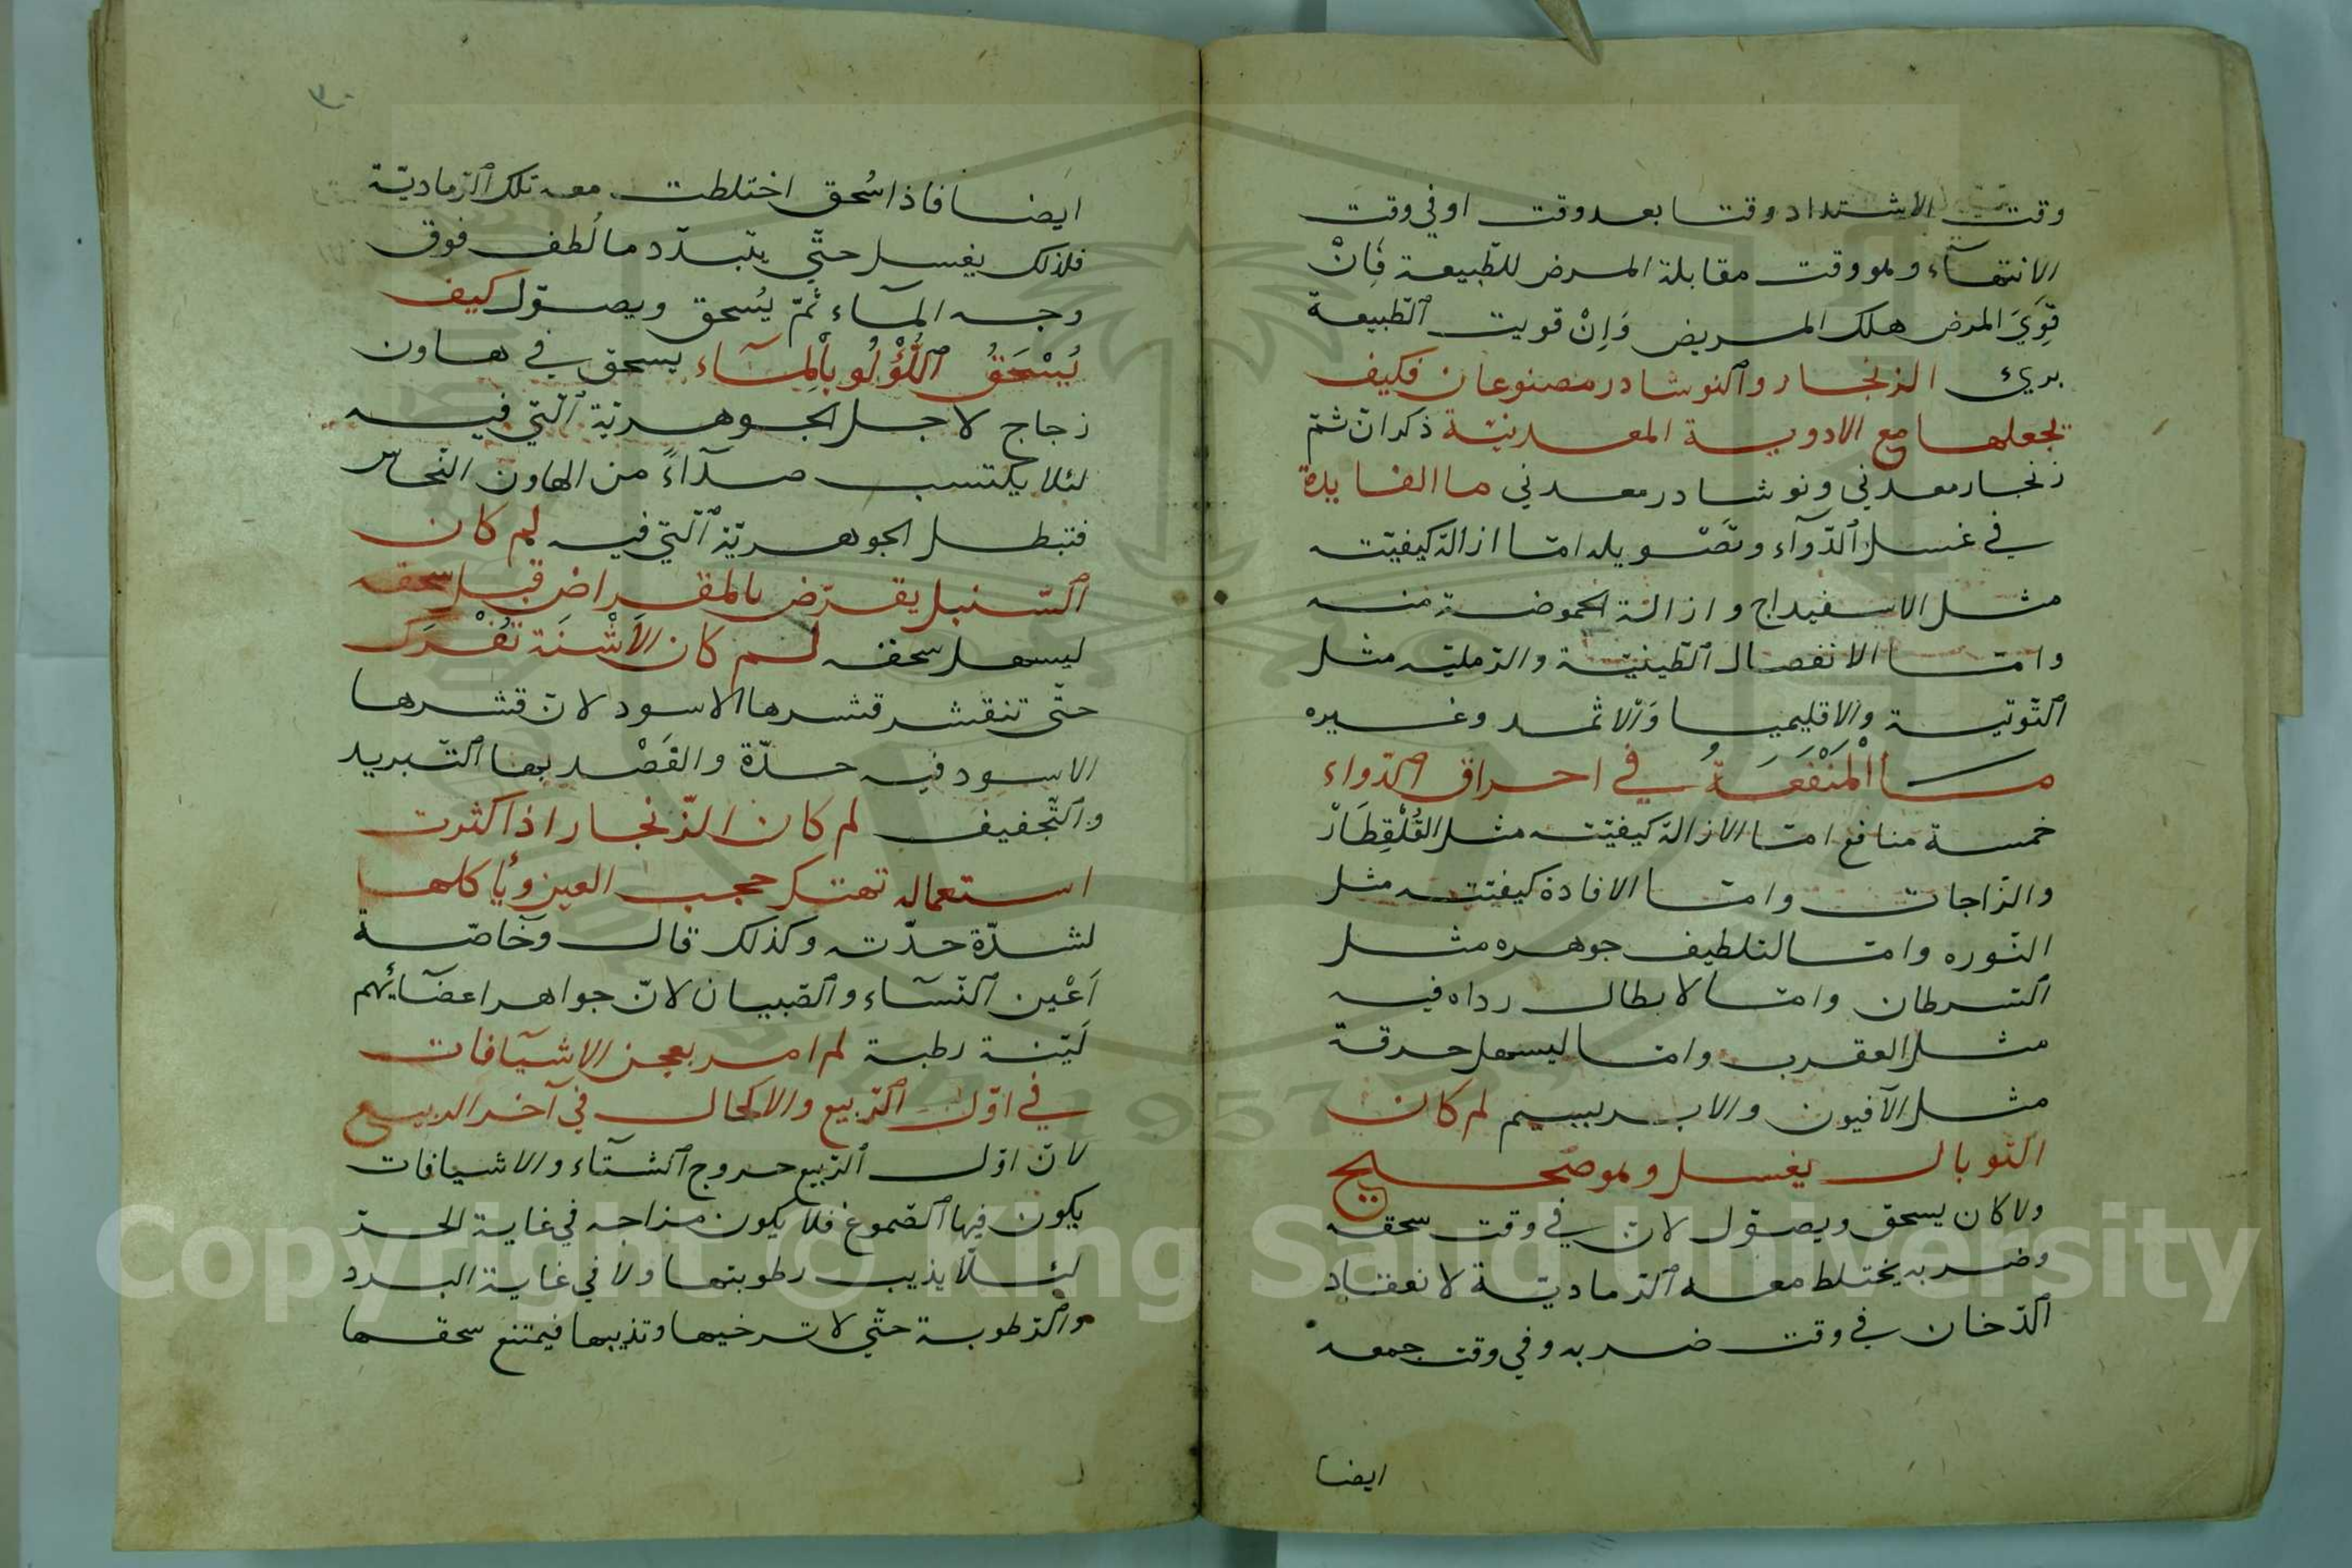 وقت الاشتداد وقتا بعد وقت او في وقت
الانتهآء وهو وقت مقابلة المرض للطّبيعة فَاِنْ
قَوِيَ المرض هلك المريض وَاِنْ قويت الطّبيعة
بريء الزنجار والنوشادر مصنوعان فكيف
تجعلها مع الادوية المعدنيّة ذكر انّ ثمّ
زنجار معدني ونوشادر معدني ما الفايدة
في غسل الدّوآء وتَصْويله امّا ازالة كيفيّته
مثل الاسفيداج وازالة الحموضة منه
وامّا الانفصال الطّينيّة والرّمليّه مثل
التّوتية والاقليميا وَالاثمد وغيره
مَا اْلمَنْفَعَةُ في احراق الدّواء
خمسة منافع امّا الازالة كيفيّته مثل القُلْقِطَارْ
والزّاجات وامّا الافادة كيفيّته مثل
النّوره وامّا لتلطيف جوهره مثل
السّرطان وامّا لابطال رداه فيه
مثل العقرب وامّا ليسهل حرقة
مثل الآفيون والابريسم لم كان
التوبال يغسل وهو صحيح
ولا كان يسحق ويصوّل لانّ في وقت سحقه
وضربه يختلط معه الرّماديّة لانعقاد
الدّخان في وقت ضربه وفي وقت جمعه
ايضا
٣٠
ايضا فاذا سُحق اختلطت معه تلك الرّماديّة
فلذلك يغسل حتّي يتبدّد ما لُطف فوق
وجه المآء ثمّ يُسحق ويصوّل كيف
يُسْحَقُ اللُّؤْلُو بِاْلمآء يسحق في هاون
زجاج لاجل الجوهريّة الّتي فيه
لئلا يكتسب صدآءً من الهاون النّحاس
فتبطل الجوهريّة الّتي فيه لم كان
السّنبل يقرّض بالمقراض قبل سحقه
ليسهل سحقه لم كان الاَشْنَة تُفْرَك
حتّي تنقشر قشرها الاسود لانّ قشرها
الاسود فيه حدّة والقَصْد بها التّبريد
والتّجفيف لم كان الزّنجار اذا كثرت
استعماله تهتك حجب العين ويأكلها
لشدّة حدّته وكذلك قال وخاصّة
اَعْين النّسآء والصّبيان لانّ جواهر اعضآئهم
لَيّنة رطبة لم امر بعجن الاشيآفات
في اوّل الرّبيع والاكحال في آخر الربيع
لانّ اوّل الرّبيع خروج الشتآء والاشيافات
يكون فيها الصّموغ فلا يكون مزاجه في غاية الحرّ
لئلّا يذيب رطوبتها ولا في غاية البرد
والرّطوبة حتّي لا ترخيها وتذيبها فيمتنع سحقها
Copyright © King Saud University
1957